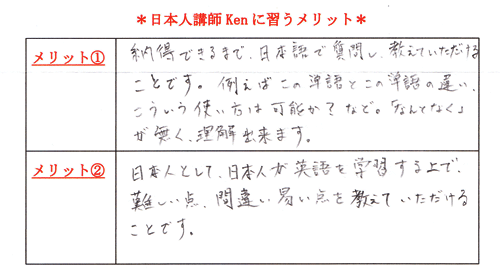 ＊日本人講師 Ken に習うメリット＊
メリット①
納得できるまで、日本語で質問し、教えていただける
ことです。例えばこの単語とこの単語の違い、
こういう使い方は可能か？など。「なんとなく」
が無く、理解出来ます。
メリット②
日本人として、日本人が英語を学習する上で、
難しい点、間違い易い点を教えていただける
ことです。